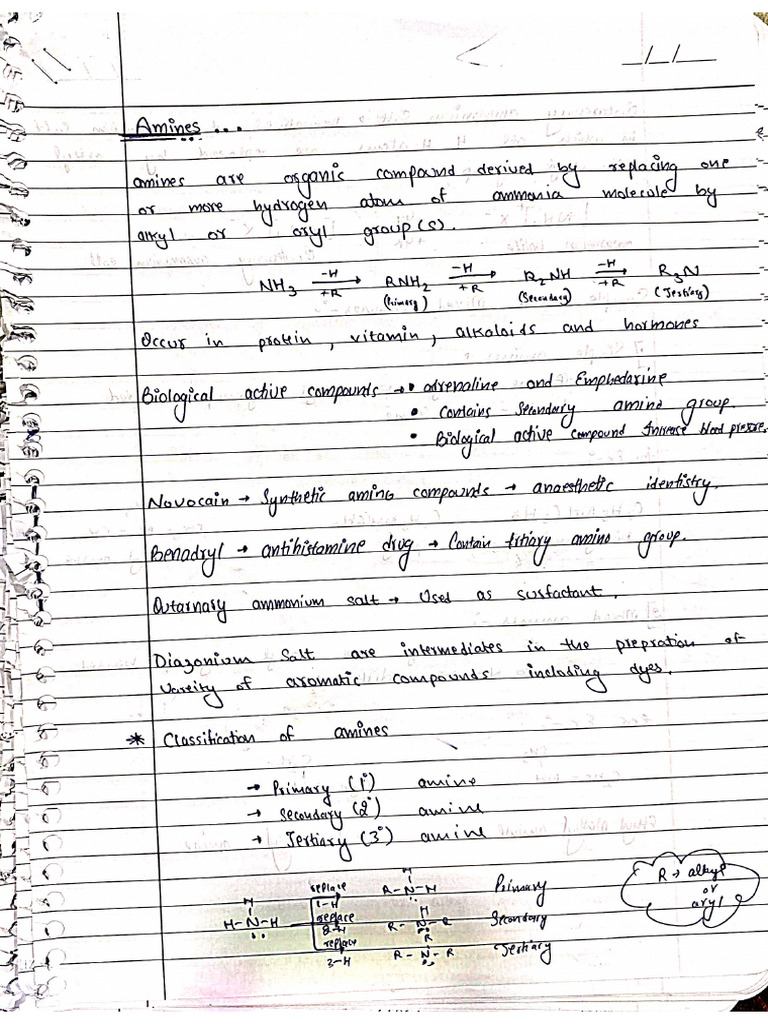 _/_/_
Amines ...
amines are organic compound derived by replacing one
or more hydrogen atom of ammonia molecule by
alkyl or aryl group(s).
NH3 -H/+R → RNH2 -H/+R → R2NH -H/+R → R3N
(Primary) (Secondary) (Tertiary)
Occur in protein, vitamin, alkaloids and hormones
Biological active compounds → • adrenaline and Emphedarine
• Contains Secondary amino group.
• Biological active compound Increase blood pressure.
Novocain → Synthetic amino compounds → anaesthetic identistry.
Benadryl → antihistamine drug → Contain trtiary amino group.
Qutarnary ammonium salt → Used as surfactant.
Diazonium Salt are intermediates in the prepration of
Vareity of aromatic compounds including dyes.
* Classification of amines
→ Primary (1°) amine
→ Secondary (2°) amine
→ Tertiary (3°) amine
R → alkyl
or
aryl
H
H-N-H
replace
1-H
H
R-N-H Primary
replace
2-H
H
R-N-R Secondary
replace
3-H
R
R-N-R Tertiary